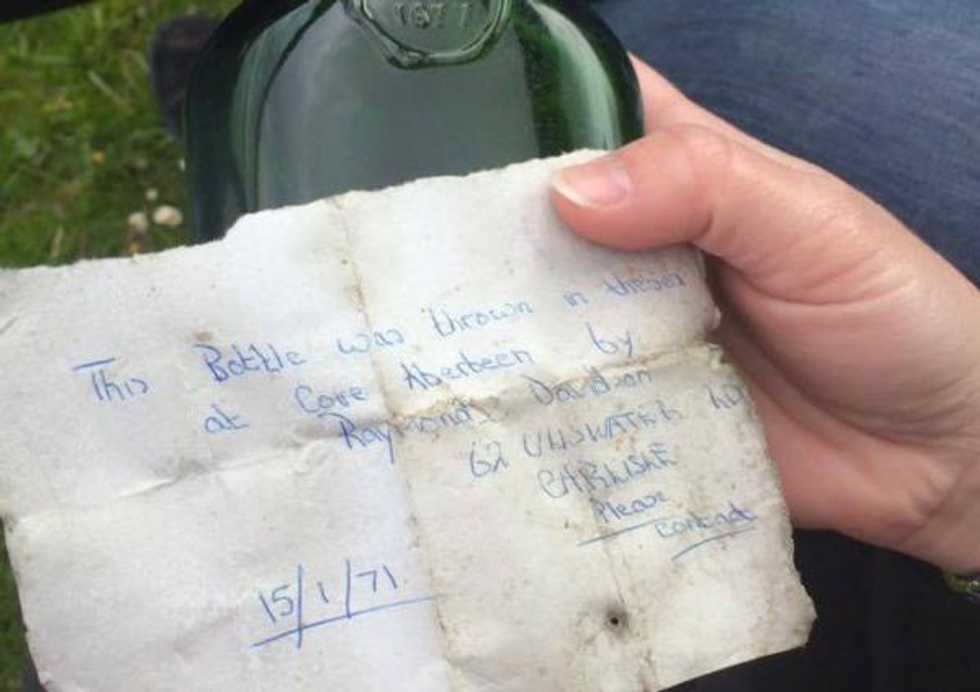 1677
This Bottle was thrown in thesea
at Cove Aberbeen by
Raymond Davidson
62 ULLSWATER RD
CARLISLE
Please
contact
15/1/71